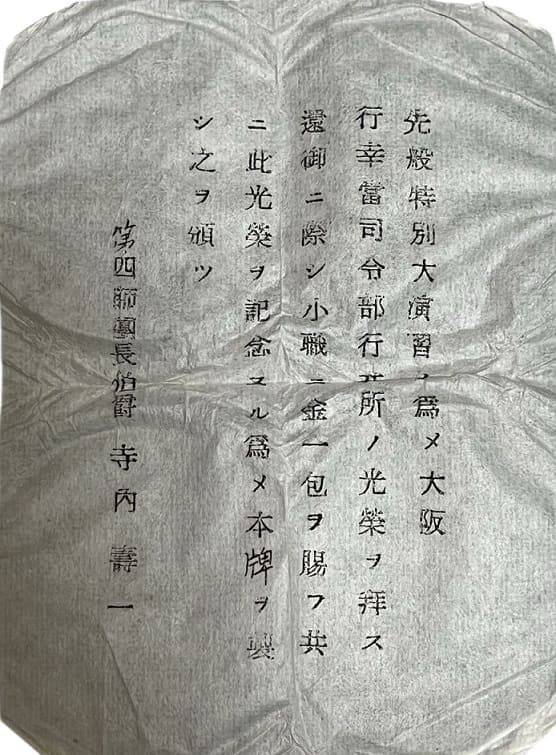 先般特別大演習ノ爲メ大阪
行幸當司令部行在所ノ光榮ヲ拜ス
還御ニ際シ小職ニ金一包ヲ賜フ共
ニ此光榮ヲ記念スル爲メ本牌ヲ製
シ之ヲ頒ツ
第四師團長伯爵 寺內壽一